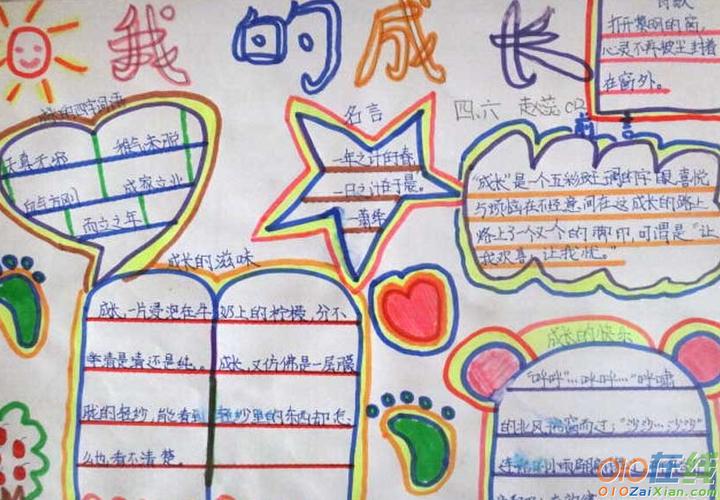 我的成长
打开黎明的窗,
心灵不再被尘封着
在窗外。
成长的四字词语
天真无邪
稚气未脱
血气方刚
成家立业
而立之年
名言
一年之计在于春
一日之计在于晨。
四、六 赵蕊
前言
"成长"是一个五彩
喜悦
与烦恼在不经意间在这成长的路上
路上了一个又一个的脚印,可谓是"让
我欢喜,让我忧。"
成长的滋味
成长,一片浸泡在牛奶上的柠檬,分不
清是 还是纯。成长,又仿佛是一层朦
胧的轻纱,能看到轻纱里的东西却怎
么也看不清楚。
成长的快乐
"哗哗"…哗哗…"呼啸
的北风 而过;"沙沙…沙沙"
010在线
010ZaiXian.com